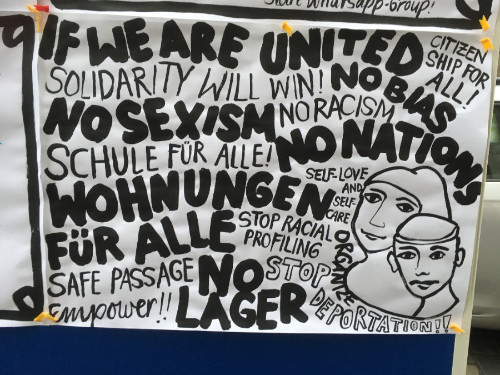 Start Whatsapp-Group!
IF WE ARE UNITED
SOLIDARITY WILL WIN!
CITIZEN
SHIP FOR
ALL!
NO BIAS
NO SEXISM
NO RACISM
NO NATIONS
SCHULE FÜR ALLE!
WOHNUNGEN
FÜR ALLE
SELF-LOVE
AND
SELF
CARE
STOP RACIAL
PROFILING
ORGANIZE
SAFE PASSAGE
NO
LAGER
STOP
DEPORTATION!!
empower!!